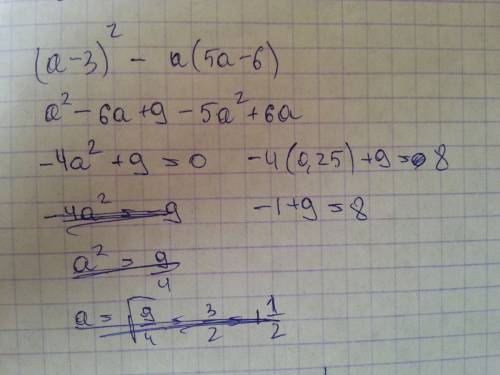 (a-3)² - a(5a-6)
a² - 6a + 9 - 5a² + 6a
-4a² + 9 = 0    -4(0,25) + 9 = 8
-4a² = 9    -1 + 9 = 8
a² = 9/4
a = √9/4 = 3/2 = 1 1/2